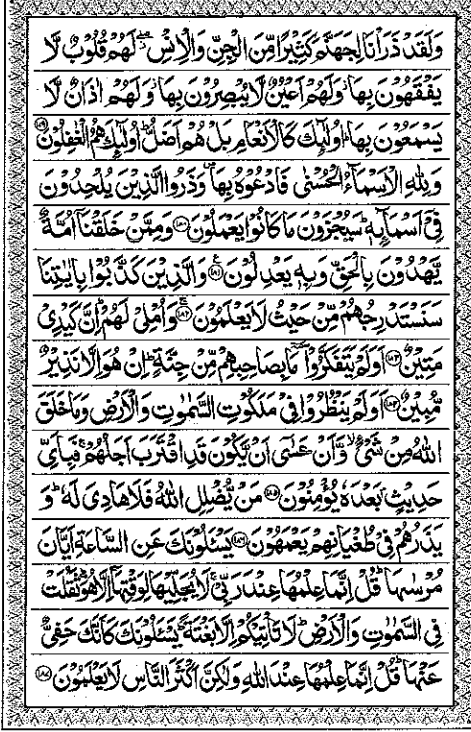 وَلَقَدْ ذَرَأْنَا لِجَهَنَّمَ كَثِيْرًا مِّنَ الْجِنِّ وَالْاِنْسِ ۖ لَهُمْ قُلُوْبٌ لَّا
يَفْقَهُوْنَ بِهَا ۫ وَلَهُمْ اَعْيُنٌ لَّا يُبْصِرُوْنَ بِهَا ۫ وَلَهُمْ اٰذَانٌ لَّا
يَسْمَعُوْنَ بِهَا ؕ اُولٰٓئِكَ كَالْاَنْعَامِ بَلْ هُمْ اَضَلُّ ؕ اُولٰٓئِكَ هُمُ الْغٰفِلُوْنَ ﴿۱۷۹﴾
وَلِلّٰهِ الْاَسْمَآءُ الْحُسْنٰى فَادْعُوْهُ بِهَا ۪ وَذَرُوا الَّذِيْنَ يُلْحِدُوْنَ
فِىْٓ اَسْمَآئِهٖ ؕ سَيُجْزَوْنَ مَا كَانُوْا يَعْمَلُوْنَ ﴿۱۸۰﴾ وَمِمَّنْ خَلَقْنَاۤ اُمَّةٌ
يَّهْدُوْنَ بِالْحَقِّ وَبِهٖ يَعْدِلُوْنَ ﴿۱۸۱﴾ وَالَّذِيْنَ كَذَّبُوْا بِاٰيٰتِنَا
سَنَسْتَدْرِجُهُمْ مِّنْ حَيْثُ لَا يَعْلَمُوْنَ ﴿۱۸۲﴾ وَاُمْلِىْ لَهُمْ ؕ اِنَّ كَيْدِىْ
مَتِيْنٌ ﴿۱۸۳﴾ اَوَلَمْ يَتَفَكَّرُوْا ٚ مَا بِصَاحِبِهِمْ مِّنْ جِنَّةٍ ؕ اِنْ هُوَ اِلَّا نَذِيْرٌ
مُّبِيْنٌ ﴿۱۸۴﴾ اَوَلَمْ يَنْظُرُوْا فِىْ مَلَكُوْتِ السَّمٰوٰتِ وَالْاَرْضِ وَمَا خَلَقَ
اللّٰهُ مِنْ شَىْءٍ ۙ وَّاَنْ عَسٰٓى اَنْ يَّكُوْنَ قَدِ اقْتَرَبَ اَجَلُهُمْ ۚ فَبِاَىِّ
حَدِيْثٍۭ بَعْدَهٗ يُؤْمِنُوْنَ ﴿۱۸۵﴾ مَنْ يُّضْلِلِ اللّٰهُ فَلَا هَادِىَ لَهٗ ؕ وَ
يَذَرُهُمْ فِىْ طُغْيَانِهِمْ يَعْمَهُوْنَ ﴿۱۸۶﴾ يَسْـَٔلُوْنَكَ عَنِ السَّاعَةِ اَيَّانَ
مُرْسٰىهَا ؕ قُلْ اِنَّمَا عِلْمُهَا عِنْدَ رَبِّىْ ۚ لَا يُجَلِّيْهَا لِوَقْتِهَاۤ اِلَّا هُوَ ؔۘ ثَقُلَتْ
فِى السَّمٰوٰتِ وَالْاَرْضِ ؕ لَا تَاْتِيْكُمْ اِلَّا بَغْتَةً ؕ يَسْـَٔلُوْنَكَ كَاَنَّكَ حَفِىٌّ
عَنْهَا ؕ قُلْ اِنَّمَا عِلْمُهَا عِنْدَ اللّٰهِ وَلٰكِنَّ اَكْثَرَ النَّاسِ لَا يَعْلَمُوْنَ ﴿۱۸۷﴾